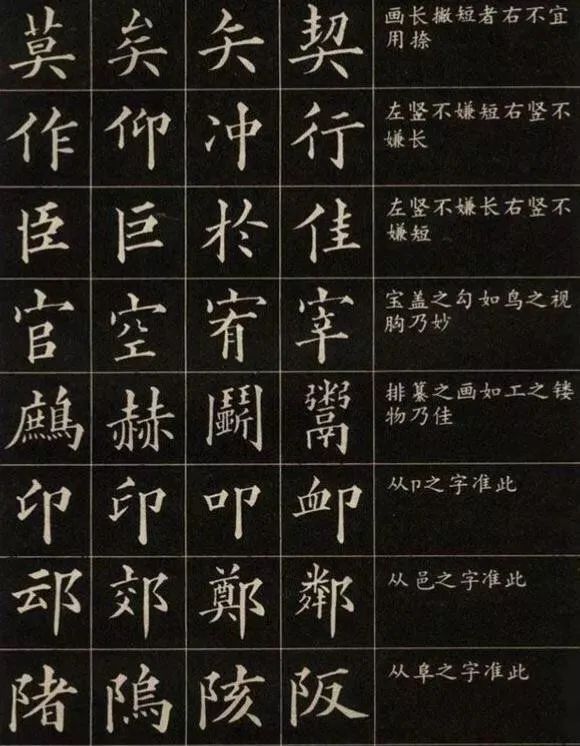 莫矣矢契 画长撇短者右不宜
用捺
作仰冲行 左竖不嫌短右竖不
嫌长
臣巨於佳 左竖不嫌长右竖不
嫌短
官空宥宰 宝盖之勾如鸟之视
胸乃妙
鷓赫鬬鬻 排纂之画如工之镂
物乃佳
印印叩卹 从卩之字准此
䢵郊鄭鄰 从邑之字准此
陼隖陔阪 从阜之字准此